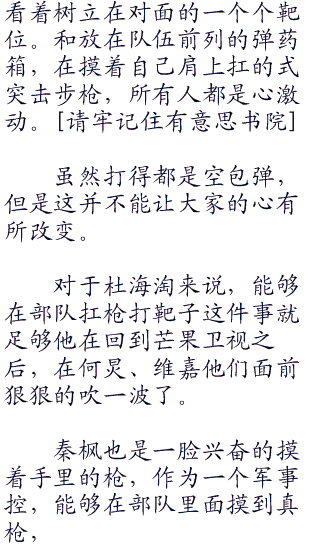 看着树立在对面的一个个靶
位。和放在队伍前列的弹药
箱，在摸着自己肩上扛的式
突击步枪，所有人都是心激
动。[请牢记住有意思书院]
虽然打得都是空包弹，
但是这并不能让大家的心有
所改变。
对于杜海淘来说，能够
在部队扛枪打靶子这件事就
足够他在回到芒果卫视之
后，在何炅、维嘉他们面前
狠狠的吹一波了。
秦枫也是一脸兴奋的摸
着手里的枪，作为一个军事
控，能够在部队里面摸到真
枪，